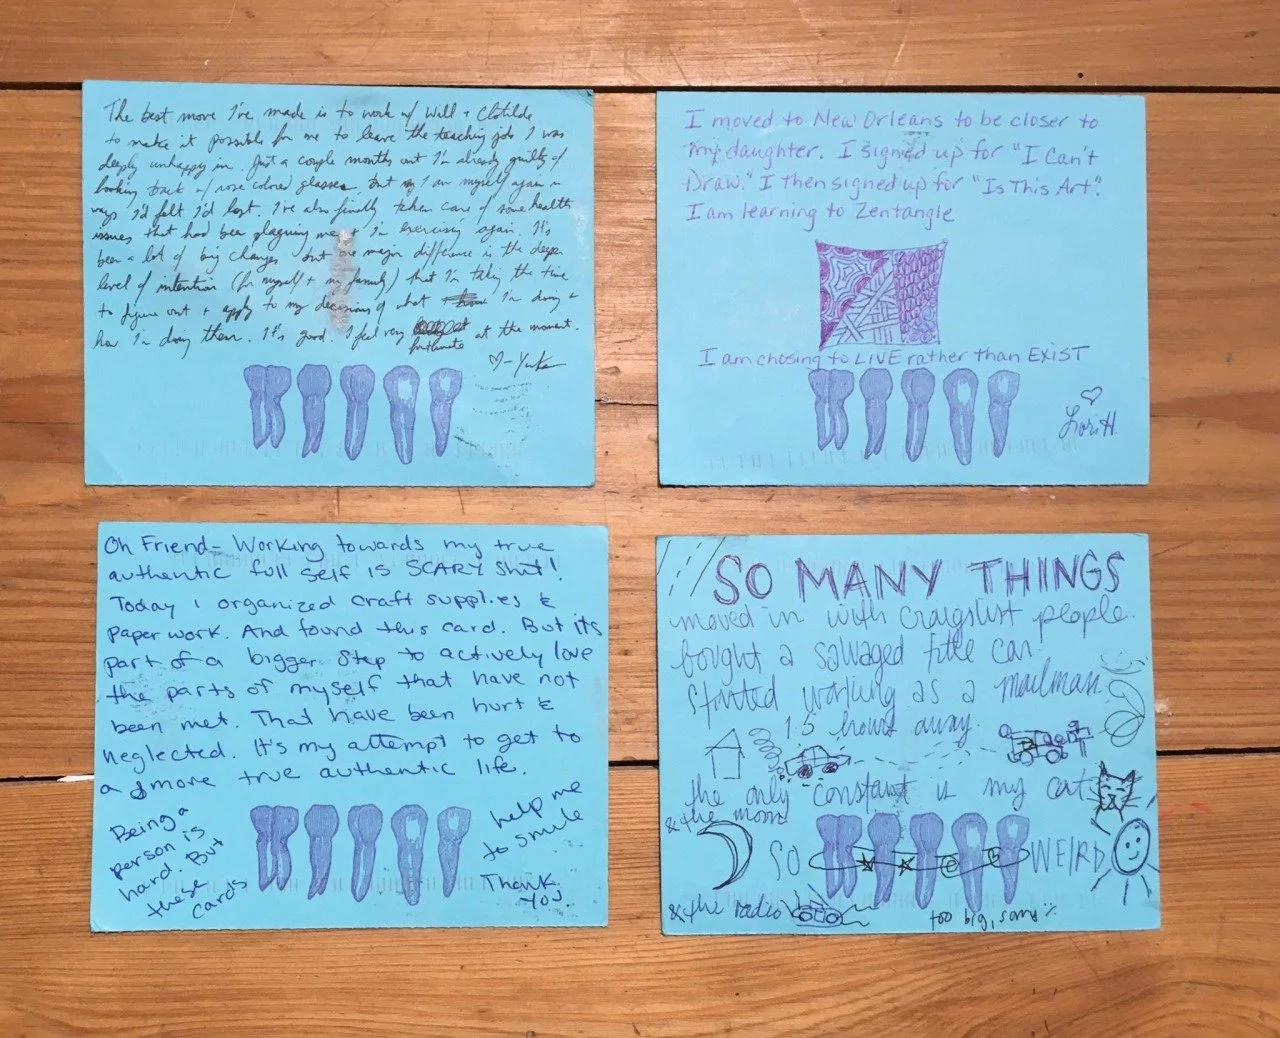 The best move I've made is to work w/ Will + Clotilde
to make it possible for me to leave the teaching job I was
deeply unhappy in. Just a couple months out I'm already guilty of
looking back w/ rose colored glasses, but I am myself again in
ways I'd felt I'd lost. I've also finally taken care of some health
issues that had been plaguing me + I'm exercising again. It's
been a lot of big changes but one major difference is the deeper
level of intention (for myself + my family) that I'm taking the time
to figure out + apply to my decisions of what I'm doing +
how I'm doing them. It's good. I feel very at the moment.
fortunate
I moved to New Orleans to be closer to
my daughter. I signed up for "I Can't
Draw." I then signed up for "Is This Art".
I am learning to Zentangle
I am chosing to LIVE rather than EXIST
Lori H.
Oh Friend- Working towards my true
authentic full self is SCARY shit!
Today I organized craft supplies &
paper work. And found this card. But its
part of a bigger step to actively love
the parts of myself that have not
been met. That have been hurt &
neglected. It's my attempt to get to
a more true authentic life.
Being a
person is
hard. But
these
cards
help me
to smile
Thank
you.
SO MANY THINGS
moved in with Craigslist people.
bought a salvaged title car.
started working as a mailman
15 hours away.
the only constant is my cat
& the moon
SO WEIRD
& the radio
too big, sorry